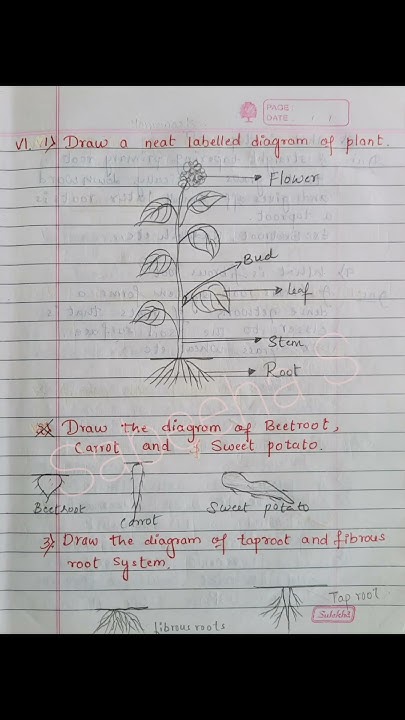 PAGE:
DATE: / /
VI. 1) Draw a neat labelled diagram of plant.
Flower
Bud
leaf
Stem
Root
2) Draw the diagram of Beetroot,
Carrot and Sweet potato.
Beetroot
Carrot
Sweet potato
3) Draw the diagram of taproot and fibrous
root system.
Tap root
fibrous roots
Sabeeha S